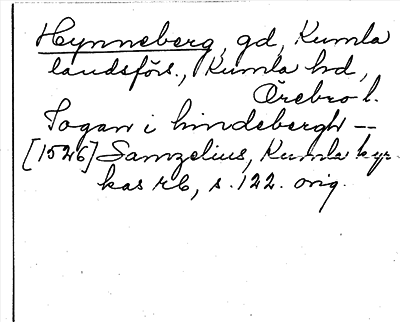 Hynneberg, gd, Kumla
landsförs., Kumla hd,
Örebro l.
Togan i hindebergh --
[1526] Samzelius, Kumla kyr-
kas rb, s. 122. orig.